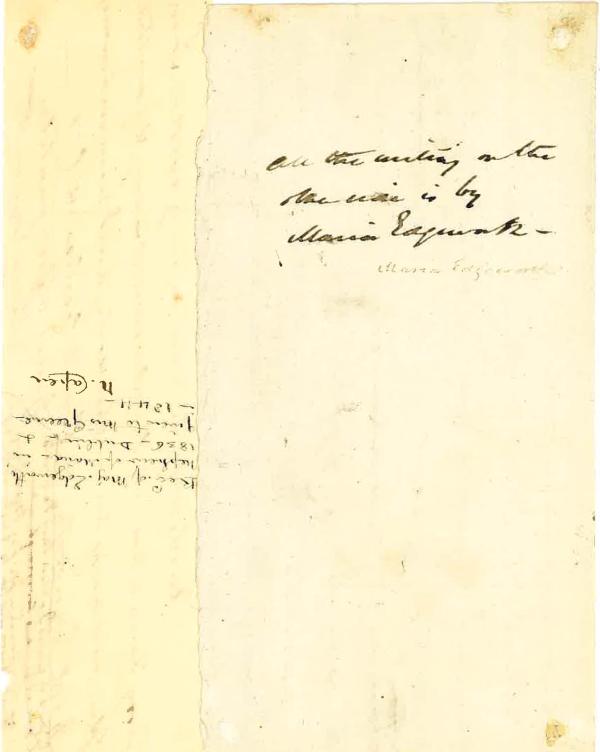 All the writing on the
other side is by
Maria Edgeworth –
Maria Edgeworth
Rec. of Maj. Edgeworth
nephew of Maria – in
1836 – Dublin &
given to Mrs Greene
– 1844 –
N. Capen